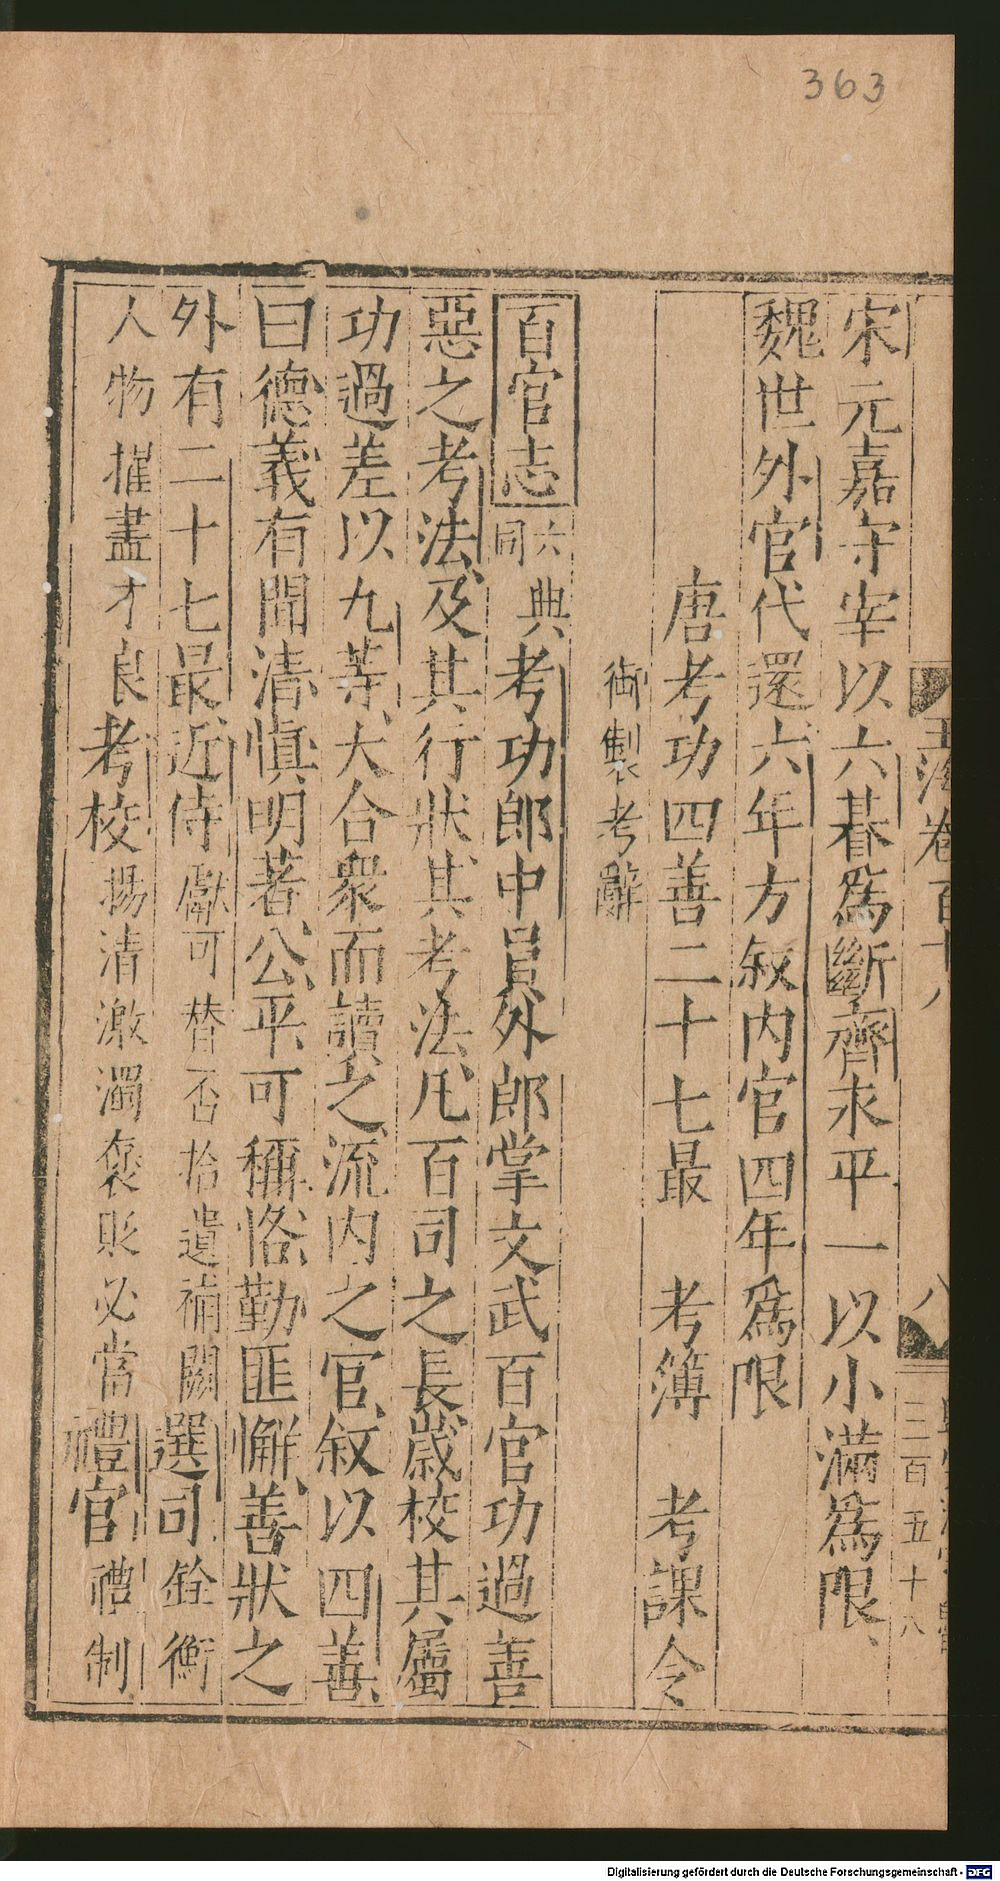 363
宋元嘉守宰以六朞爲斷齊永平一以小滿爲限、
魏世外官代還六年方叙内官四年爲限
唐考功四善二十七最　考簿　考課令
御製考辭
百官志六典同考功郎中員外郎掌文武百官功過善
惡之考法、及其行狀、其考法、凡百司之長歲校其屬
功過差以九等、大合衆而讀之、流内之官、叙以四善、
曰德義有聞清愼明著、公平可稱、恪勤匪懈、善狀之
外有二十七最、近侍獻可替否拾遺補闕選司銓衡
人物擢盡才良考校揚清激濁褒貶必當禮官禮制
三百五十八
Digitalisierung gefördert durch die Deutsche Forschungsgemeinschaft - DFG